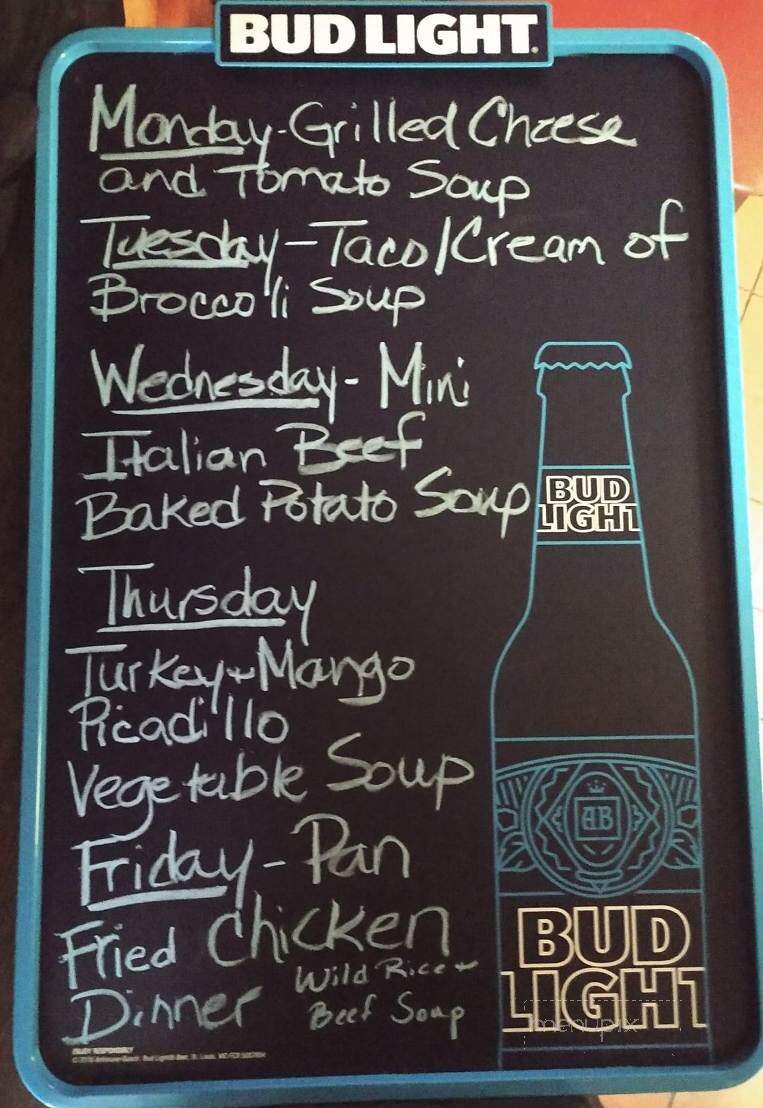 BUD LIGHT.
Monday-Grilled Cheese
and Tomato Soup
Tuesday-Taco/Cream of
Broccoli Soup
Wednesday-Mini
Italian Beef
Baked Potato Soup
BUD
LIGHT
Thursday
Turkey+Mango
Picadillo
Vegetable Soup
Friday-Pan
Fried Chicken
Dinner
Wild Rice +
Beef Soup
AB
BUD
LIGHT
menupix
ENJOY RESPONSIBLY